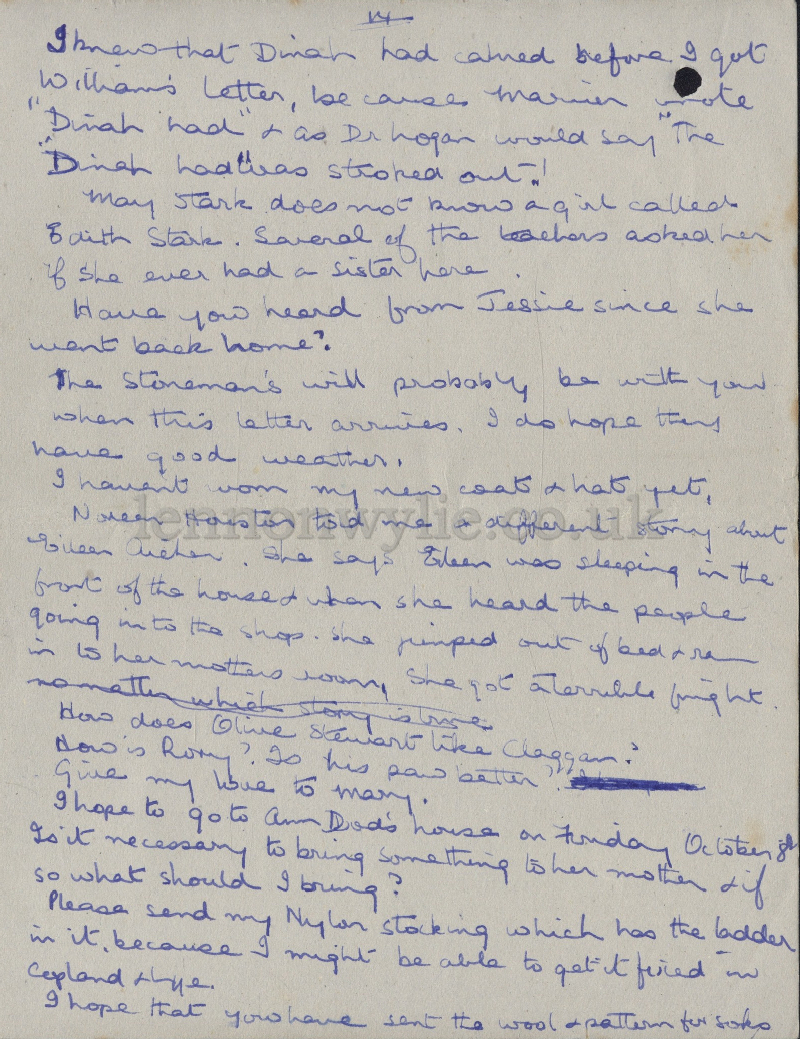 14
I knew that Dinah had calved before I got
William's letter, because Marion wrote
"Dinah had" & as Dr Logan would say "The
"Dinah had" was stroked out"!
May Stark does not know a girl called
Edith Stark. Several of the teachers asked her
if she ever had a sister here.
Have you heard from Jessie since she
went back home?
The Stoneman's will probably be with you
when this letter arrives. I do hope they
have good weather.
I havent worn my new coat & hat yet,
lennonwylie.co.uk
Noreen Houston told me a different story about
Eileen Archer. She says Eileen was sleeping in the
front of the house & when she heard the people
going in to the shop. She jumped out of bed & ran
in to her mothers room, She got a terrible fright.
no matter which story is true
How does Olive Stewart like Claggan?
How is Rory? Is his paw better?
Give my love to Mary.
I hope to go to Ann Dod's house on Friday October 8th
Is it necessary to bring something to her mother & if
so what should I bring?
Please send my Nylon stocking which has the ladder
in it, because I might be able to get it fixed in
Copland & Lye.
I hope that you have sent the wool & pattern for socks